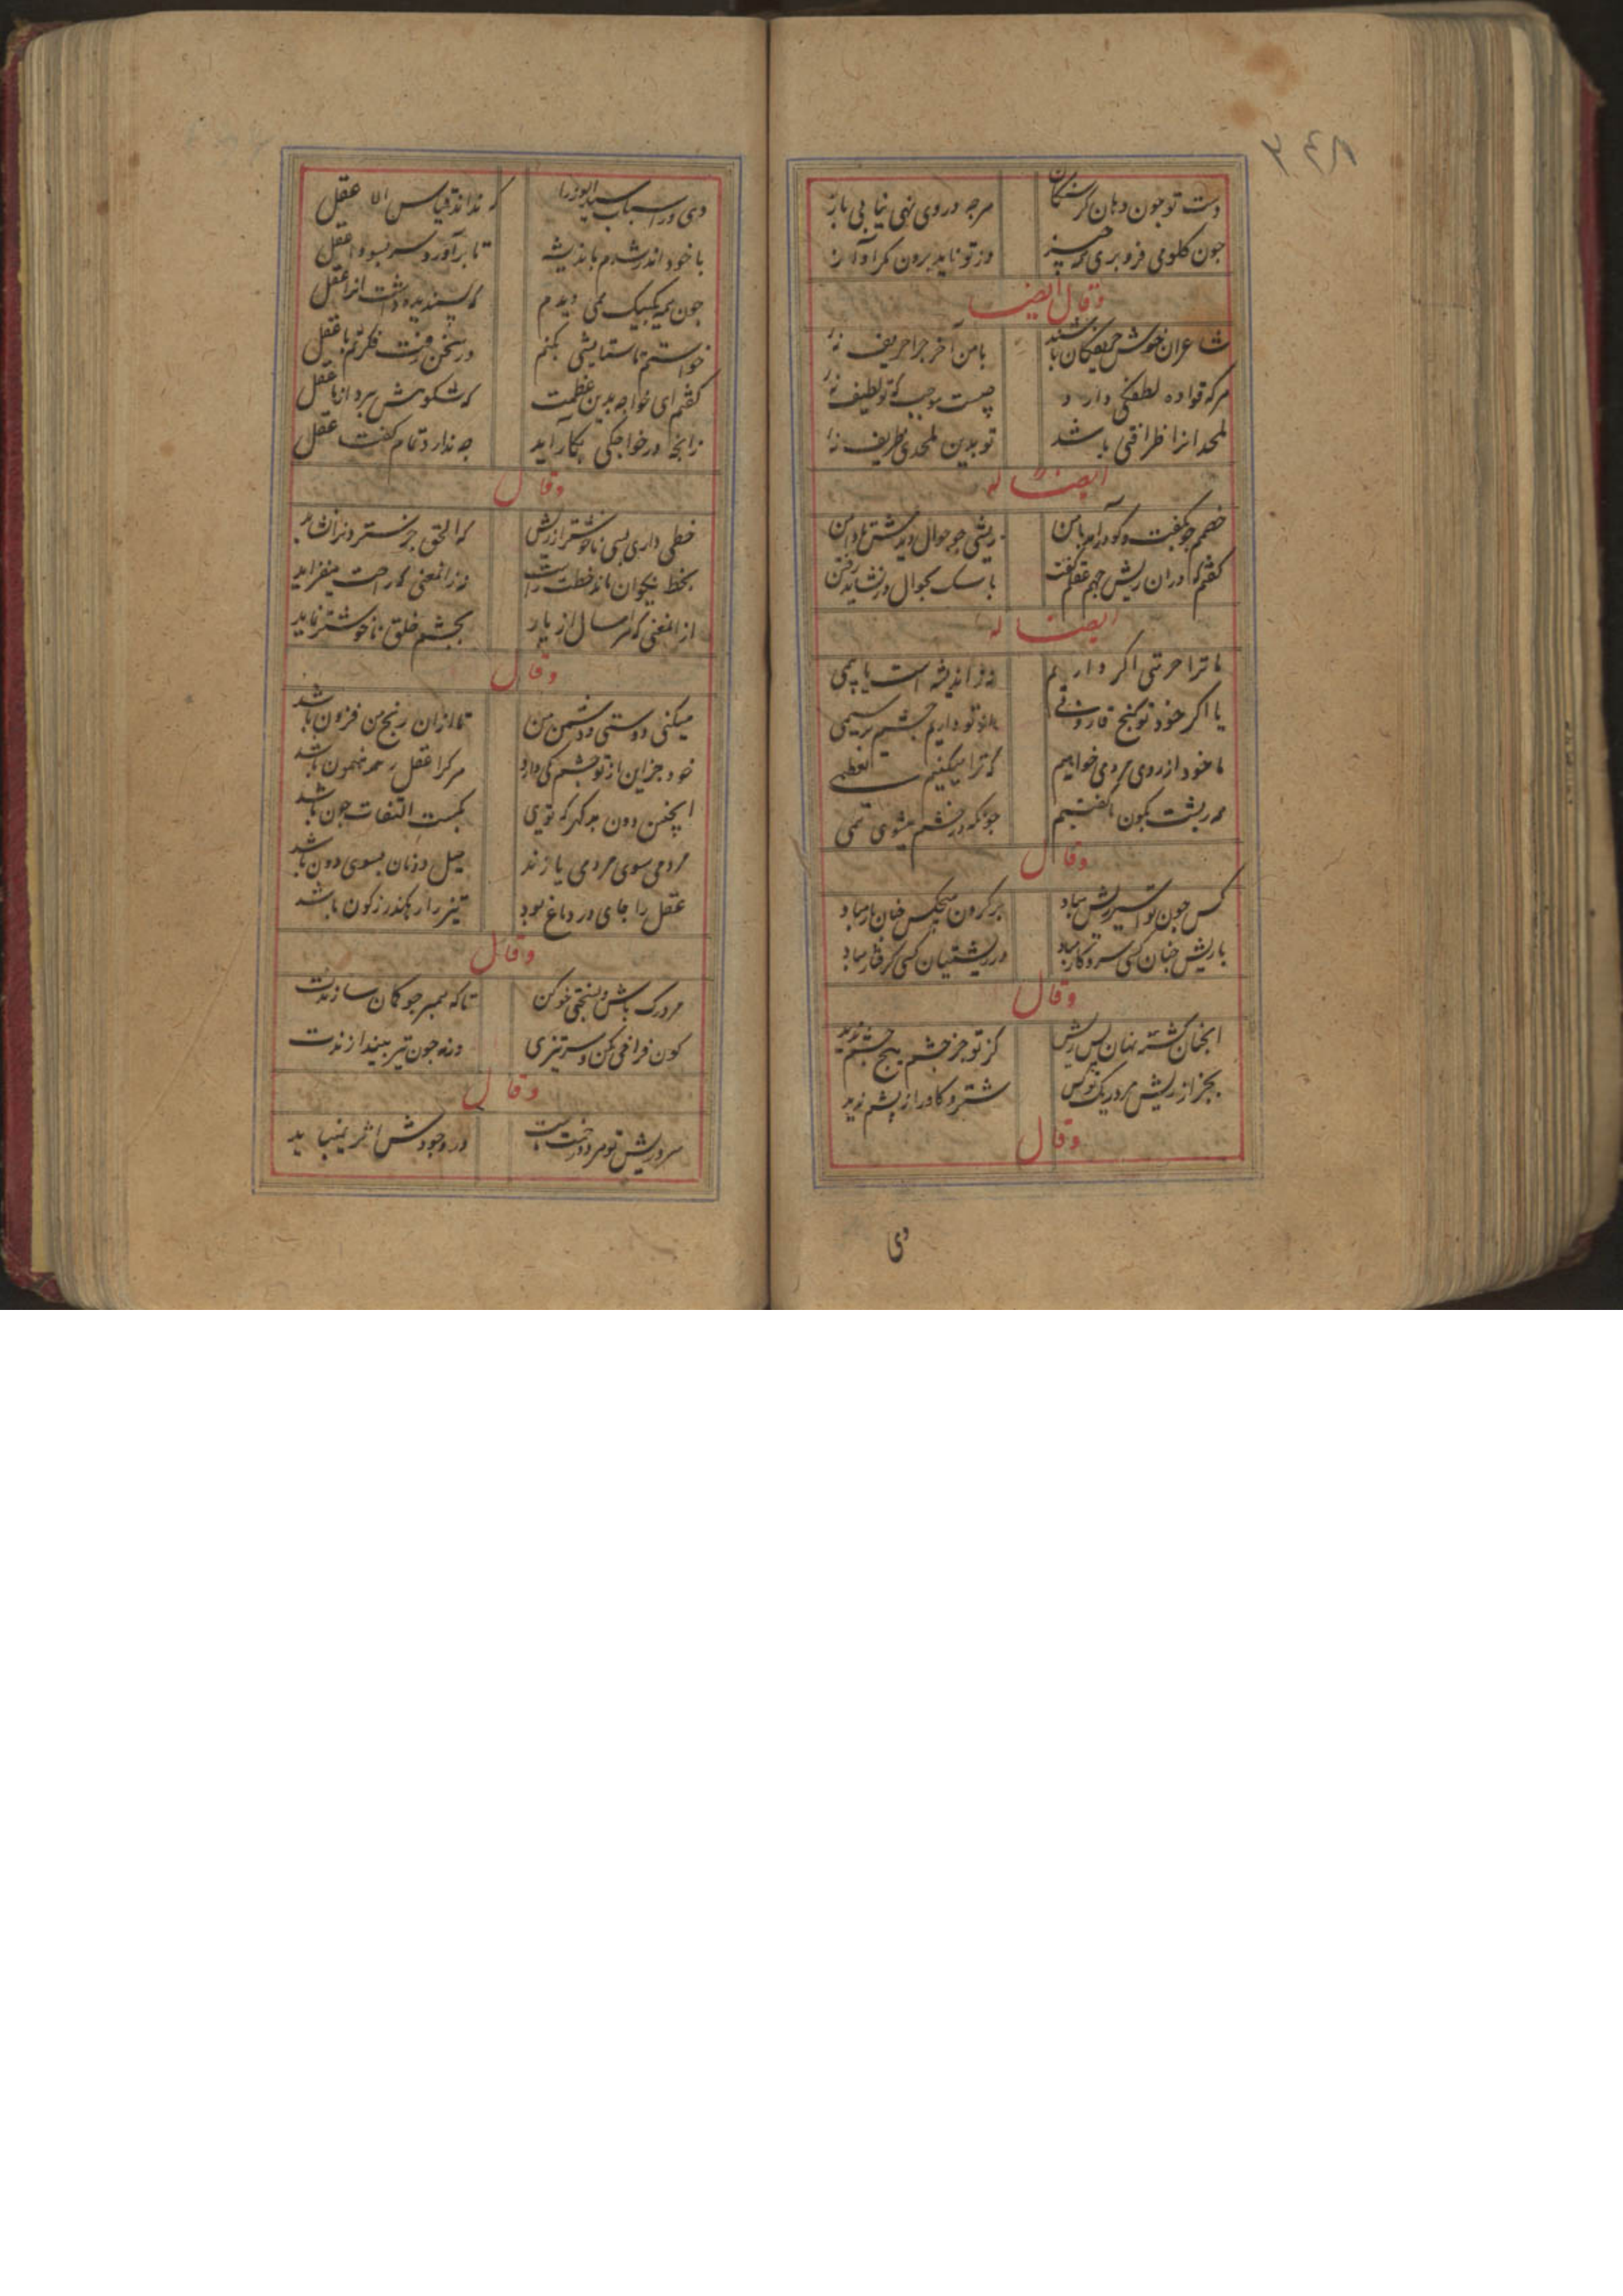 ۳۴۸
دست تو جون دهان گر سنکان هرجه در وی نهی نیابی باز
جون کلوی فرو بری همه چیز وز تو ناید برون مکر آواز
وقال ایضا
شاعران خوش حریفکان باشند با من آخر جرا حریف نه
هرکه قواده لطفکی دارد چیست موجب که تو لطیف نه
ملحدانرا ظرافتی باشد تو بدین ملحدی ظریف نه
ایضا له
خصمم جو بکفت وکو درآمد با من ریشی جو جوال دیدمش تا دامن
کفتم که در آن ریش جهم عقلم کفت با سک بجوال در نشاید رفتن
ایضا له
ما ترا حرمتی اکر داریم نه ز اندیشه است یا بیمی
یا اکر خود تو کنج قارونی ما ز تو داریم چشم بر سیمی
ما خود از روی مردمی خواهیم که ترا میکنیم تعظیمی
جونکه در خشم میشوی نمی
وقال
کس جون تو اسیر ریش مباد بر کردن هیچکس جنان بار مباد
با ریش جنان کسی سر و کار مباد در ریش جنان کسی کرفتار مباد
وقال
آنجنان کشته نهان پس ریش کز تو جز خشم هیچ جشم ندید
بجز از ریش مردریک تو کس شتر و کاو را ز پشم ندید
وقال
دی
دی در اسباب سید الوزرا که نداند قیاس آن عقل
با خود اندر شدم باندیشه تا برآورد سر بسودا عقل
جون همه یک بیک همی دیدم که پسندیده داشت آنرا عقل
خواستم تا ستایشی بکنم در سخن رفت فکرتم با عقل
کفتم ای خواجه بدین عظمت که شکوهش ببرد از ما عقل
زانجه در خواجکی بکار آید جه ندارد تمام کفت عقل
وقال
خطی داری بسی ناخوشتر از ریش که الحق جز ستردنرا نشاید
بخط نیکوان ماند خطت راست نه زانمعنی که راحت میفزاید
از انمعنی که هر سال از پار بجشم خلق ناخوشتر نماید
وقال
میکنی دوستی و دشمن من تا از آن رنج من فزون باشد
خود جز این از تو جشم کی دارد هرکرا عقل رهنمون باشد
اینچنین دون بد کهر که توی بکمت التفات جون باشد
مردمی سوی مردمی یازند میل دونان بسوی دون باشد
عقل را جای در دماغ بود تیز را رهکذر ز کون باشد
وقال
مردرک باش و بسختی خو کن تا که همبر جو کمان سازندت
کون فراخی مکن و سر تیزی ورنه جون تیر بیندازندت
وقال
سر و ریش تو در وجودش اثر نمیباید